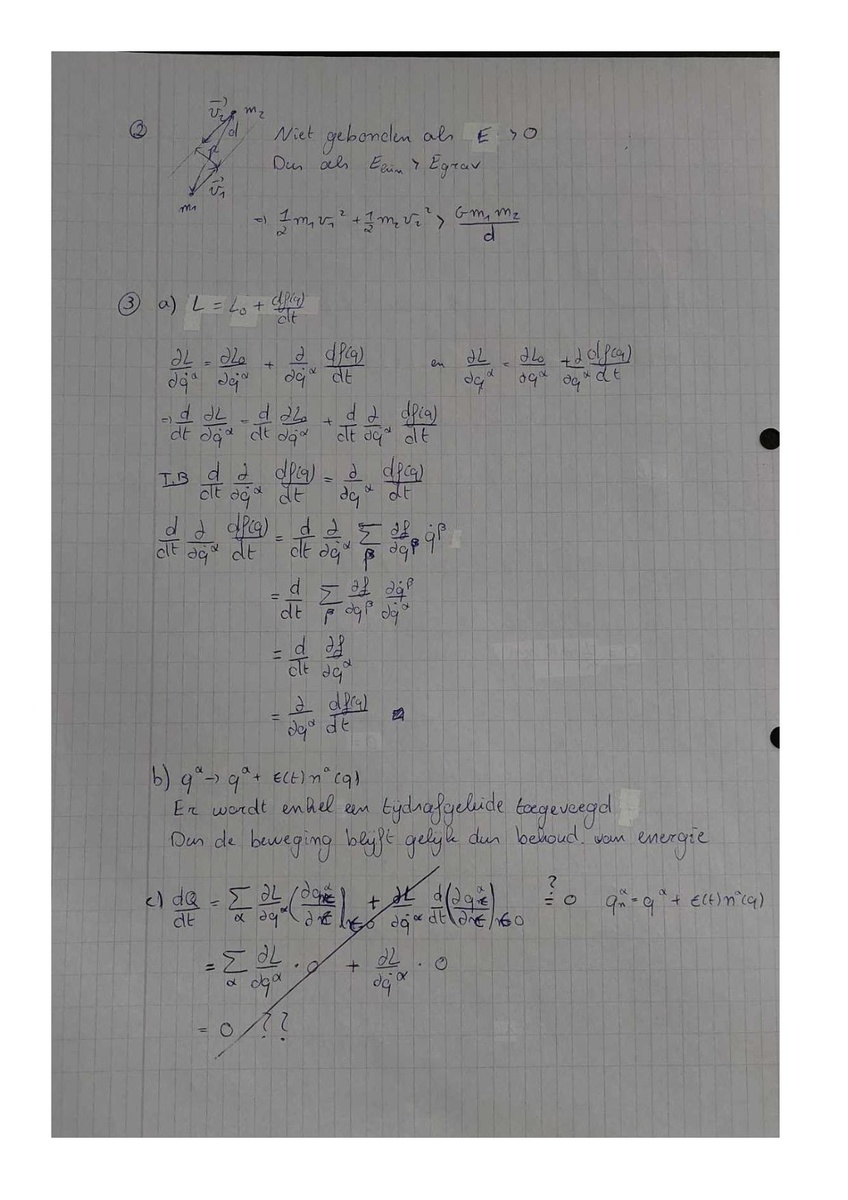 ② v⃗₂ m₂
d
r
v⃗₁
m₁
Niet gebonden als E > 0
Dus als Ekin > Egrav
⇒ 1/2 m₁v₁² + 1/2 m₂v₂² > Gm₁m₂/d
③ a) L = L₀ + df(q)/dt
∂L/∂q̇^α = ∂L₀/∂q̇^α + ∂/∂q̇^α df(q)/dt en ∂L/∂q^α = ∂L₀/∂q^α + ∂/∂q^α df(q)/dt
⇒ d/dt ∂L/∂q̇^α = d/dt ∂L₀/∂q̇^α + d/dt ∂/∂q̇^α df(q)/dt
T.B d/dt ∂/∂q̇^α df(q)/dt = ∂/∂q^α df(q)/dt
d/dt ∂/∂q̇^α df(q)/dt = d/dt ∂/∂q̇^α Σ_β ∂f/∂q^β q̇^β
= d/dt Σ_β ∂f/∂q^β ∂q̇^β/∂q̇^α
= d/dt ∂f/∂q^α
= ∂/∂q^α df(q)/dt
b) q^α → q^α + ε(t) n^α(q)
Er wordt enkel een tijdsafgeleide toegevoegd
Dus de beweging blijft gelijk dus behoud van energie
c) dQ/dt = Σ_α ∂L/∂q^α (∂q^α/∂ε)|ε=0 + ∂L/∂q̇^α d/dt(∂q^α/∂ε)|ε=0 ?= 0 q^α_n = q^α + ε(t) n^α(q)
= Σ_α ∂L/∂q^α · 0 + ∂L/∂q̇^α · 0
= 0 ??